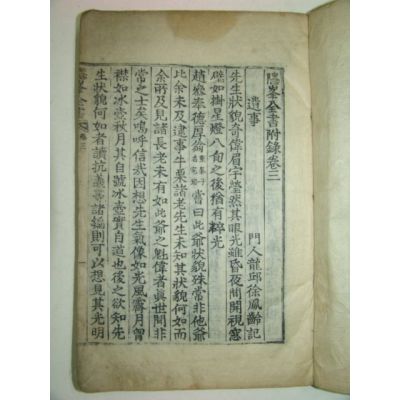 隱峯全書附錄卷三
遺事
門人龍邱徐鳳齡記
先生狀貌奇偉眉宇瑩然其眼光雖昏夜間開視窓
壁如樹星燈八旬之後猶有粹光
趙參奉德厚翁嘗曰此爺狀貌殊常非他爺
比余未及逮事牛栗諸老先生未知其狀貌何如而
余所及見諸長老未有如此爺之魁偉者眞世間非
常之士矣嗚呼信哉因想先生氣像如光風霽月胷
襟如冰壺秋月其自號冰壺實自道也後之欲知先
生狀貌何如者讀抗義諸編則可以想見其光明